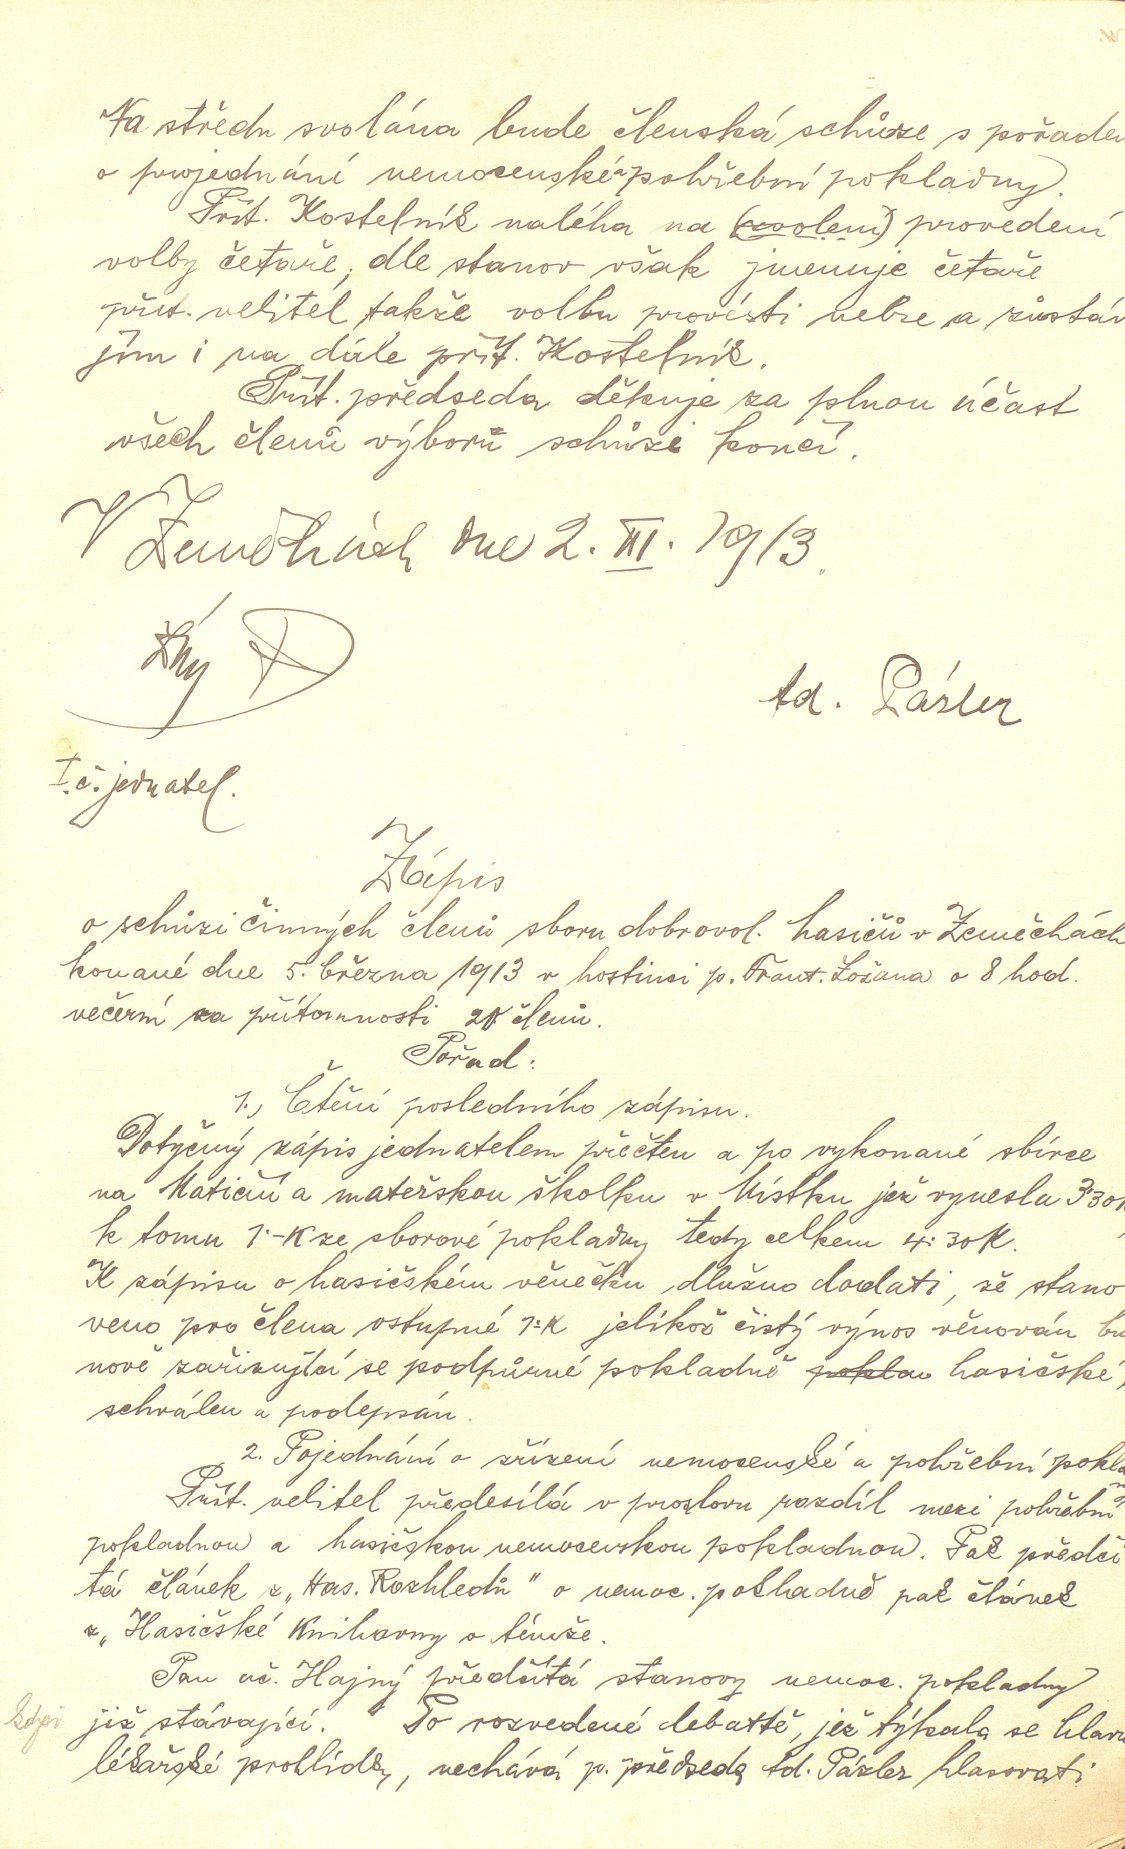 Na středu svolána bude členská schůze s pořadem
o projednání nemocenské a pohřební pokladny.
Přít. Kostelník naléha na (zvolení) provedení
volby četaře, dle stanov však jmenuje četaře
přít. velitel, takže volbu provésti nelze a zůstáv
jím i na dále přít. Kostelník.
Přít. předseda děkuje za plnou účast
všech členů výborů schůzi končí.
V Zeměchách dne 2. III. 1913.
ad. Pázler
I. č. jednatel.
Zápis
o schůzi činných členů sboru dobrovol. hasičů v Zeměchách
konané dne 5. března 1913 v hostinci p. Frant. Ložana o 8 hod.
večerní za přítomnosti členů.
Pořad:
1., Čtění posledního zápisu.
Dotyčný zápis jednatelem přečten a po vykonané sbírce
na Matiční a mateřskou školku v Místku jež vynesla 3·30K
k tomu 1·-K ze sborové pokladny tedy celkem 4:30K.
K zápisu o hasičském věnečku dlužno dodati, že stano
veno pro člena vstupné 1:-K jelikož čistý výnos věnován bu
nově zařizující se podpůrné pokladně poklav hasičské,
schválen a podepsán.
2. Pojednání o zřízení nemocenské a pohřební pokla
Přít. velitel předesílá v proslovu rozdíl mezi pohřební
pokladnou a hasičskou nemocenskou pokladnou. Pak předčí
tá článek z „Has. Rozhledů" o nemoc. pokladně pak článek
z „Hasičské Knihovny o témže.
Pan uč. Hajný předčítá stanovy nemoc. pokladny
již stávající. Po rozvedené debattě, jež týkala se hlavn
lékařské prohlídky, nechává p. předseda ad. Pázler hlasovati